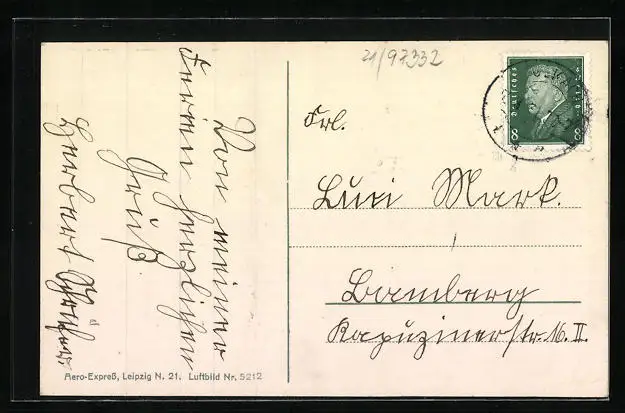 21/97332
Von meinen
Ferien herzlichen
Gruß.
Herbert
Frl.
Luci Mark.
Bamberg
Kapuzinerstr. 16. II.
Deutsches Reich
8 8
Aero-Expreß, Leipzig N. 21. Luftbild Nr. 5212